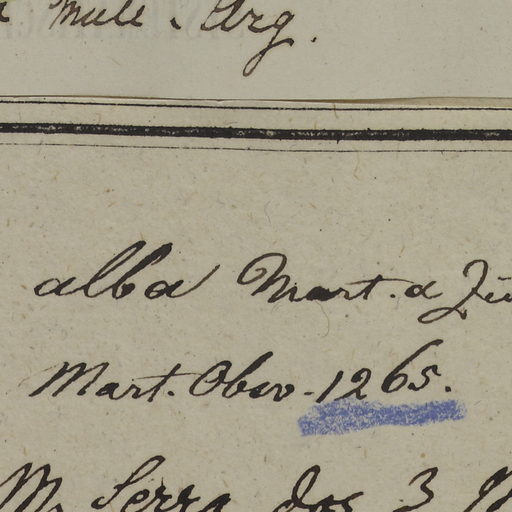 Müll. Arg.
alba Mart. a Zu
Mart. Obsv. 1265.
M. Serra dos 3